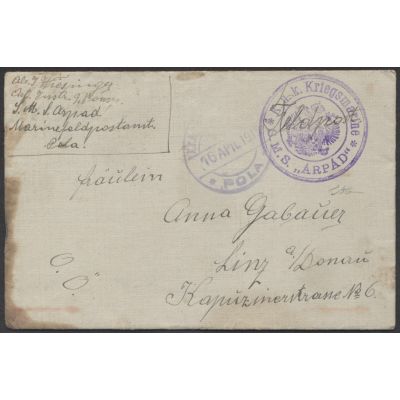 S. M. S. Arpád
Marinefeldpostamt
Pola.
K. u. k. Kriegsmarine
S.M.S. „ÁRPÁD"
Feldpost
16 APR. 191
POLA
Fräulein
Anna Gabauer
Linz a/Donau
Kapuzinerstrasse № 6.